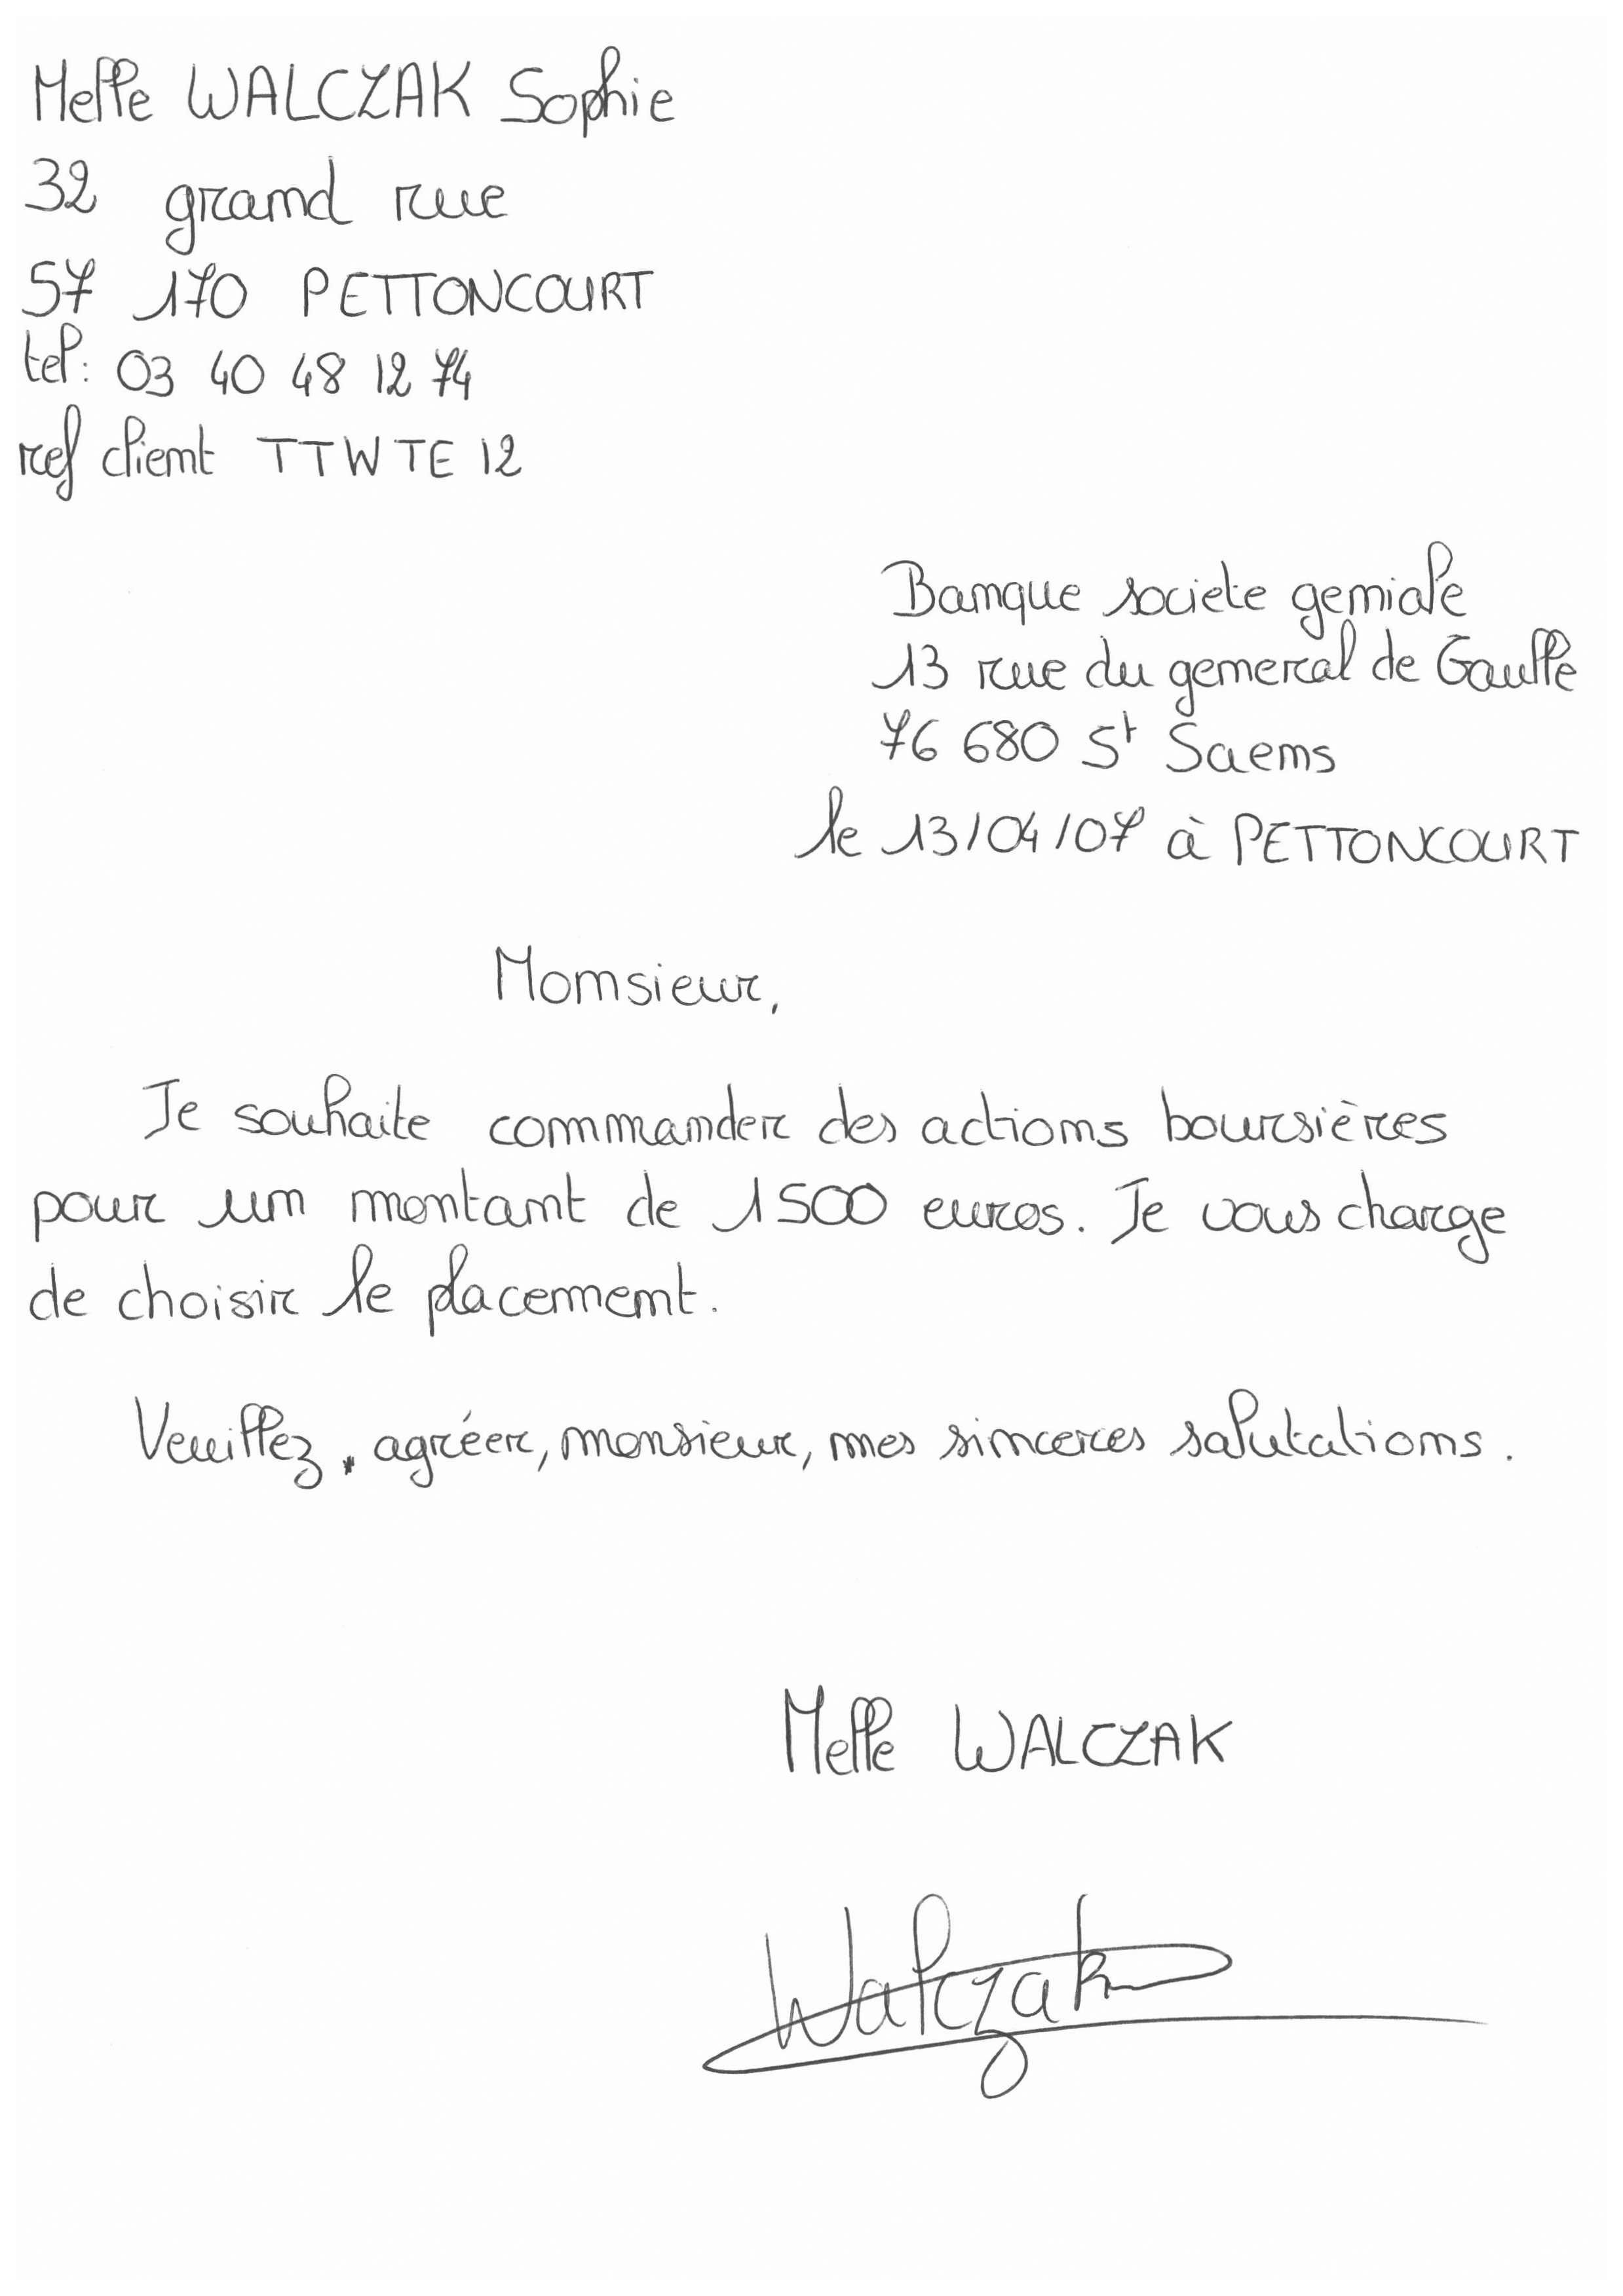 Melle WALCZAK Sophie
32 grand rue
57 170 PETTONCOURT
tel: 03 40 48 12 74
ref client TTWTE 12
Banque societe geniale
13 rue du general de Gaulle
76 680 St Saens
le 13/04/07 à PETTONCOURT
Monsieur,
Je souhaite commander des actions boursières
pour un montant de 1500 euros. Je vous charge
de choisir le placement.
Veuillez, agréer, monsieur, mes sinceres salutations.
Melle WALCZAK
Walczak